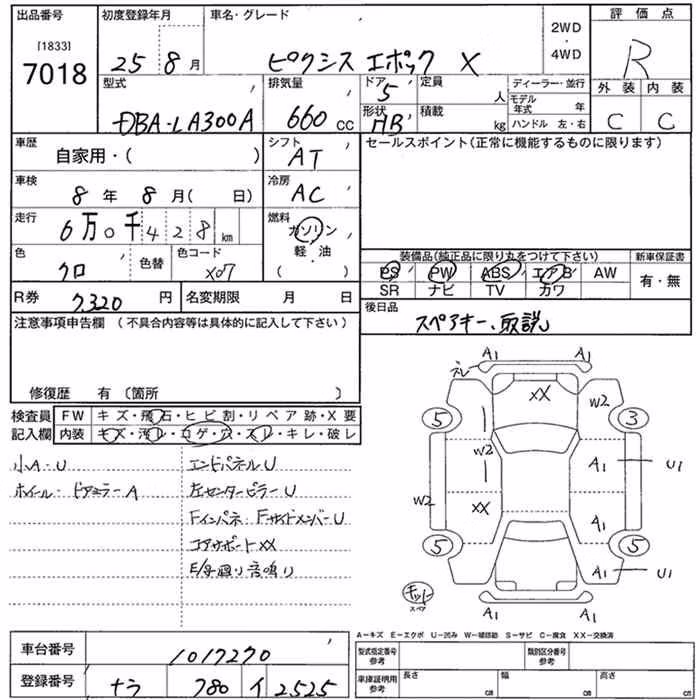 出品番号 初度登録年月 車名・グレード 2WD・4WD 評価点
[1833]
7018 25 8月 ピクシス エポック X R
型式 排気量 ドア 定員 ディーラー・並行 外装 内装
DBA-LA300A 660cc 5 人 モデル年式 年 C C
形状 積載
HB kg ハンドル 左・右
車歴 シフト セールスポイント(正常に機能するものに限ります)
自家用・( ) AT
車検 冷房
8年 8月( 日) AC
走行 燃料
6万0千428km ガソリン
軽・油
( )
色 色替 色コード 装備品(純正品に限り丸をつけて下さい) 新車保証書
クロ X07 PS PW ABS エアB AW 有・無
SR ナビ TV カワ
R券 7,320円 名変期限 月 日 後日品
スペアキー、取説
注意事項申告欄 (不具合内容等は具体的に記入して下さい)
修復歴 有(箇所 )
検査員 FW キズ・飛石・ヒビ割・リペア跡・X要
記入欄 内装 キズ・汚れ・コゲ・穴・スレ・キレ・破レ
小A・U エンドパネルU
ホイール・ドアミラーA 左センターピラーU
Fインパネ・FサイドメンバーU
コアサポートXX
E/G廻り音鳴り
A1 A1
XX W2
5 3
W2 A1 U1
W2 XX A1
5 5
A1 U1
キット
スペア
A1 A1
A-キズ E-エクボ U-凹み W-補修跡 S-サビ C-腐食 XX-交換済
車台番号 1017270 型式指定番号 参考 類別区分番号 参考
登録番号 ナラ 780 イ 2525 車庫証明用 参考 長さ cm 幅 cm 高さ cm